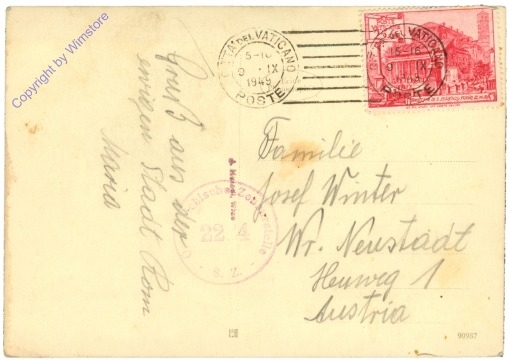 Copyright by Wimstore
Gruß aus der
ewigen Stadt Rom
Maria
CITTA DEL VATICANO
15-16
9 - IX
1949
POSTE
CITTA DEL VATICANO
15-16
9 IX
1949
POSTE
Zensurstelle
22 4
S. Z.
Familie
Josef Winter
Wr. Neustadt
Heuweg 1
Austria
90967